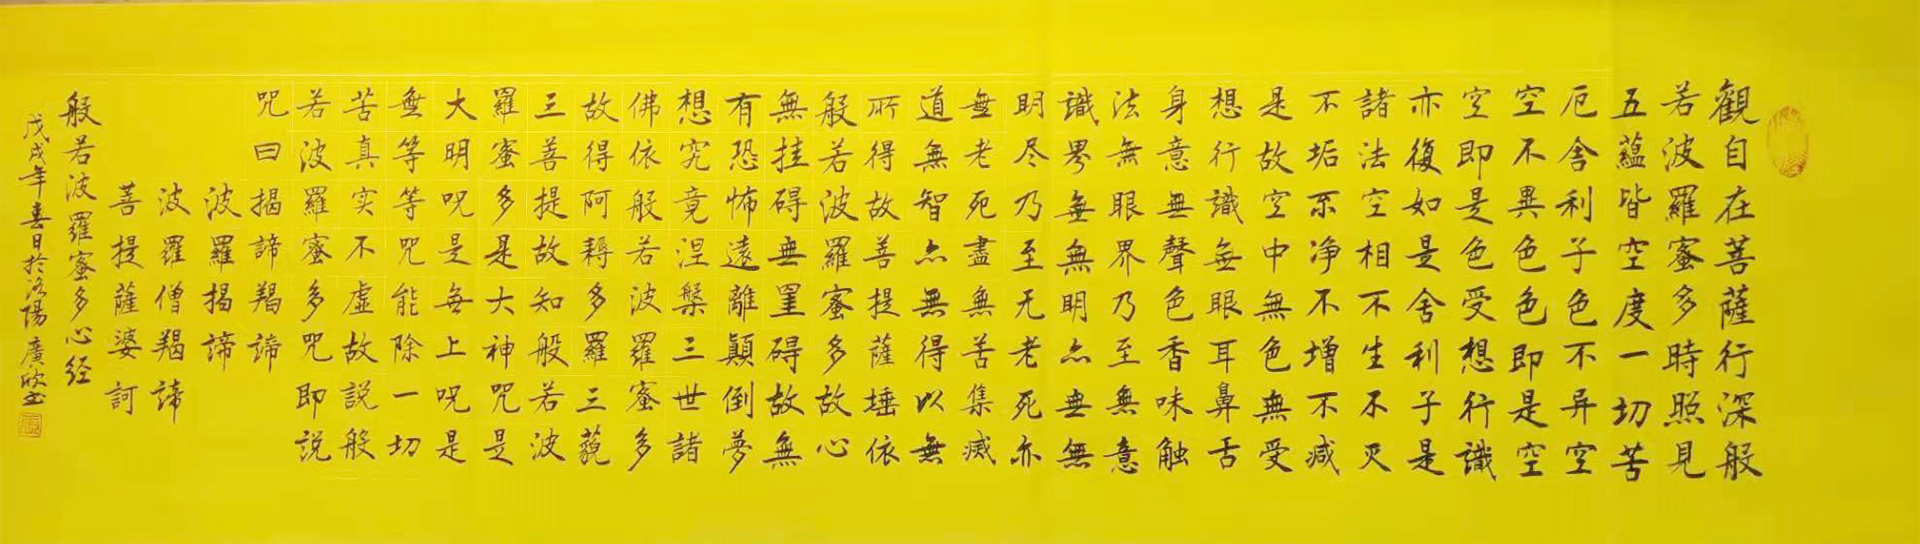 觀自在菩薩行深般
若波羅蜜多時照見
五蘊皆空度一切苦
厄舍利子色不异空
空不異色色即是空
空即是色受想行識
亦復如是舍利子是
諸法空相不生不灭
不垢不净不增不减
是故空中無色無受
想行識無眼耳鼻舌
身意無聲色香味触
法無眼界乃至無意
識界無無明亦無無
明尽乃至无老死亦
無老死盡無苦集滅
道無智亦無得以無
所得故菩提薩埵依
般若波羅蜜多故心
無挂碍無罣碍故無
有恐怖遠離顛倒夢
想究竟涅槃三世諸
佛依般若波羅蜜多
故得阿耨多羅三藐
三菩提故知般若波
羅蜜多是大神咒是
大明呪是無上呪是
無等等咒能除一切
苦真实不虚故説般
若波羅蜜多咒即説
咒曰揭諦羯諦
波羅揭諦
波羅僧羯諦
菩提薩婆訶
般若波羅蜜多心经
戊戌年春日於洛陽廣欣书